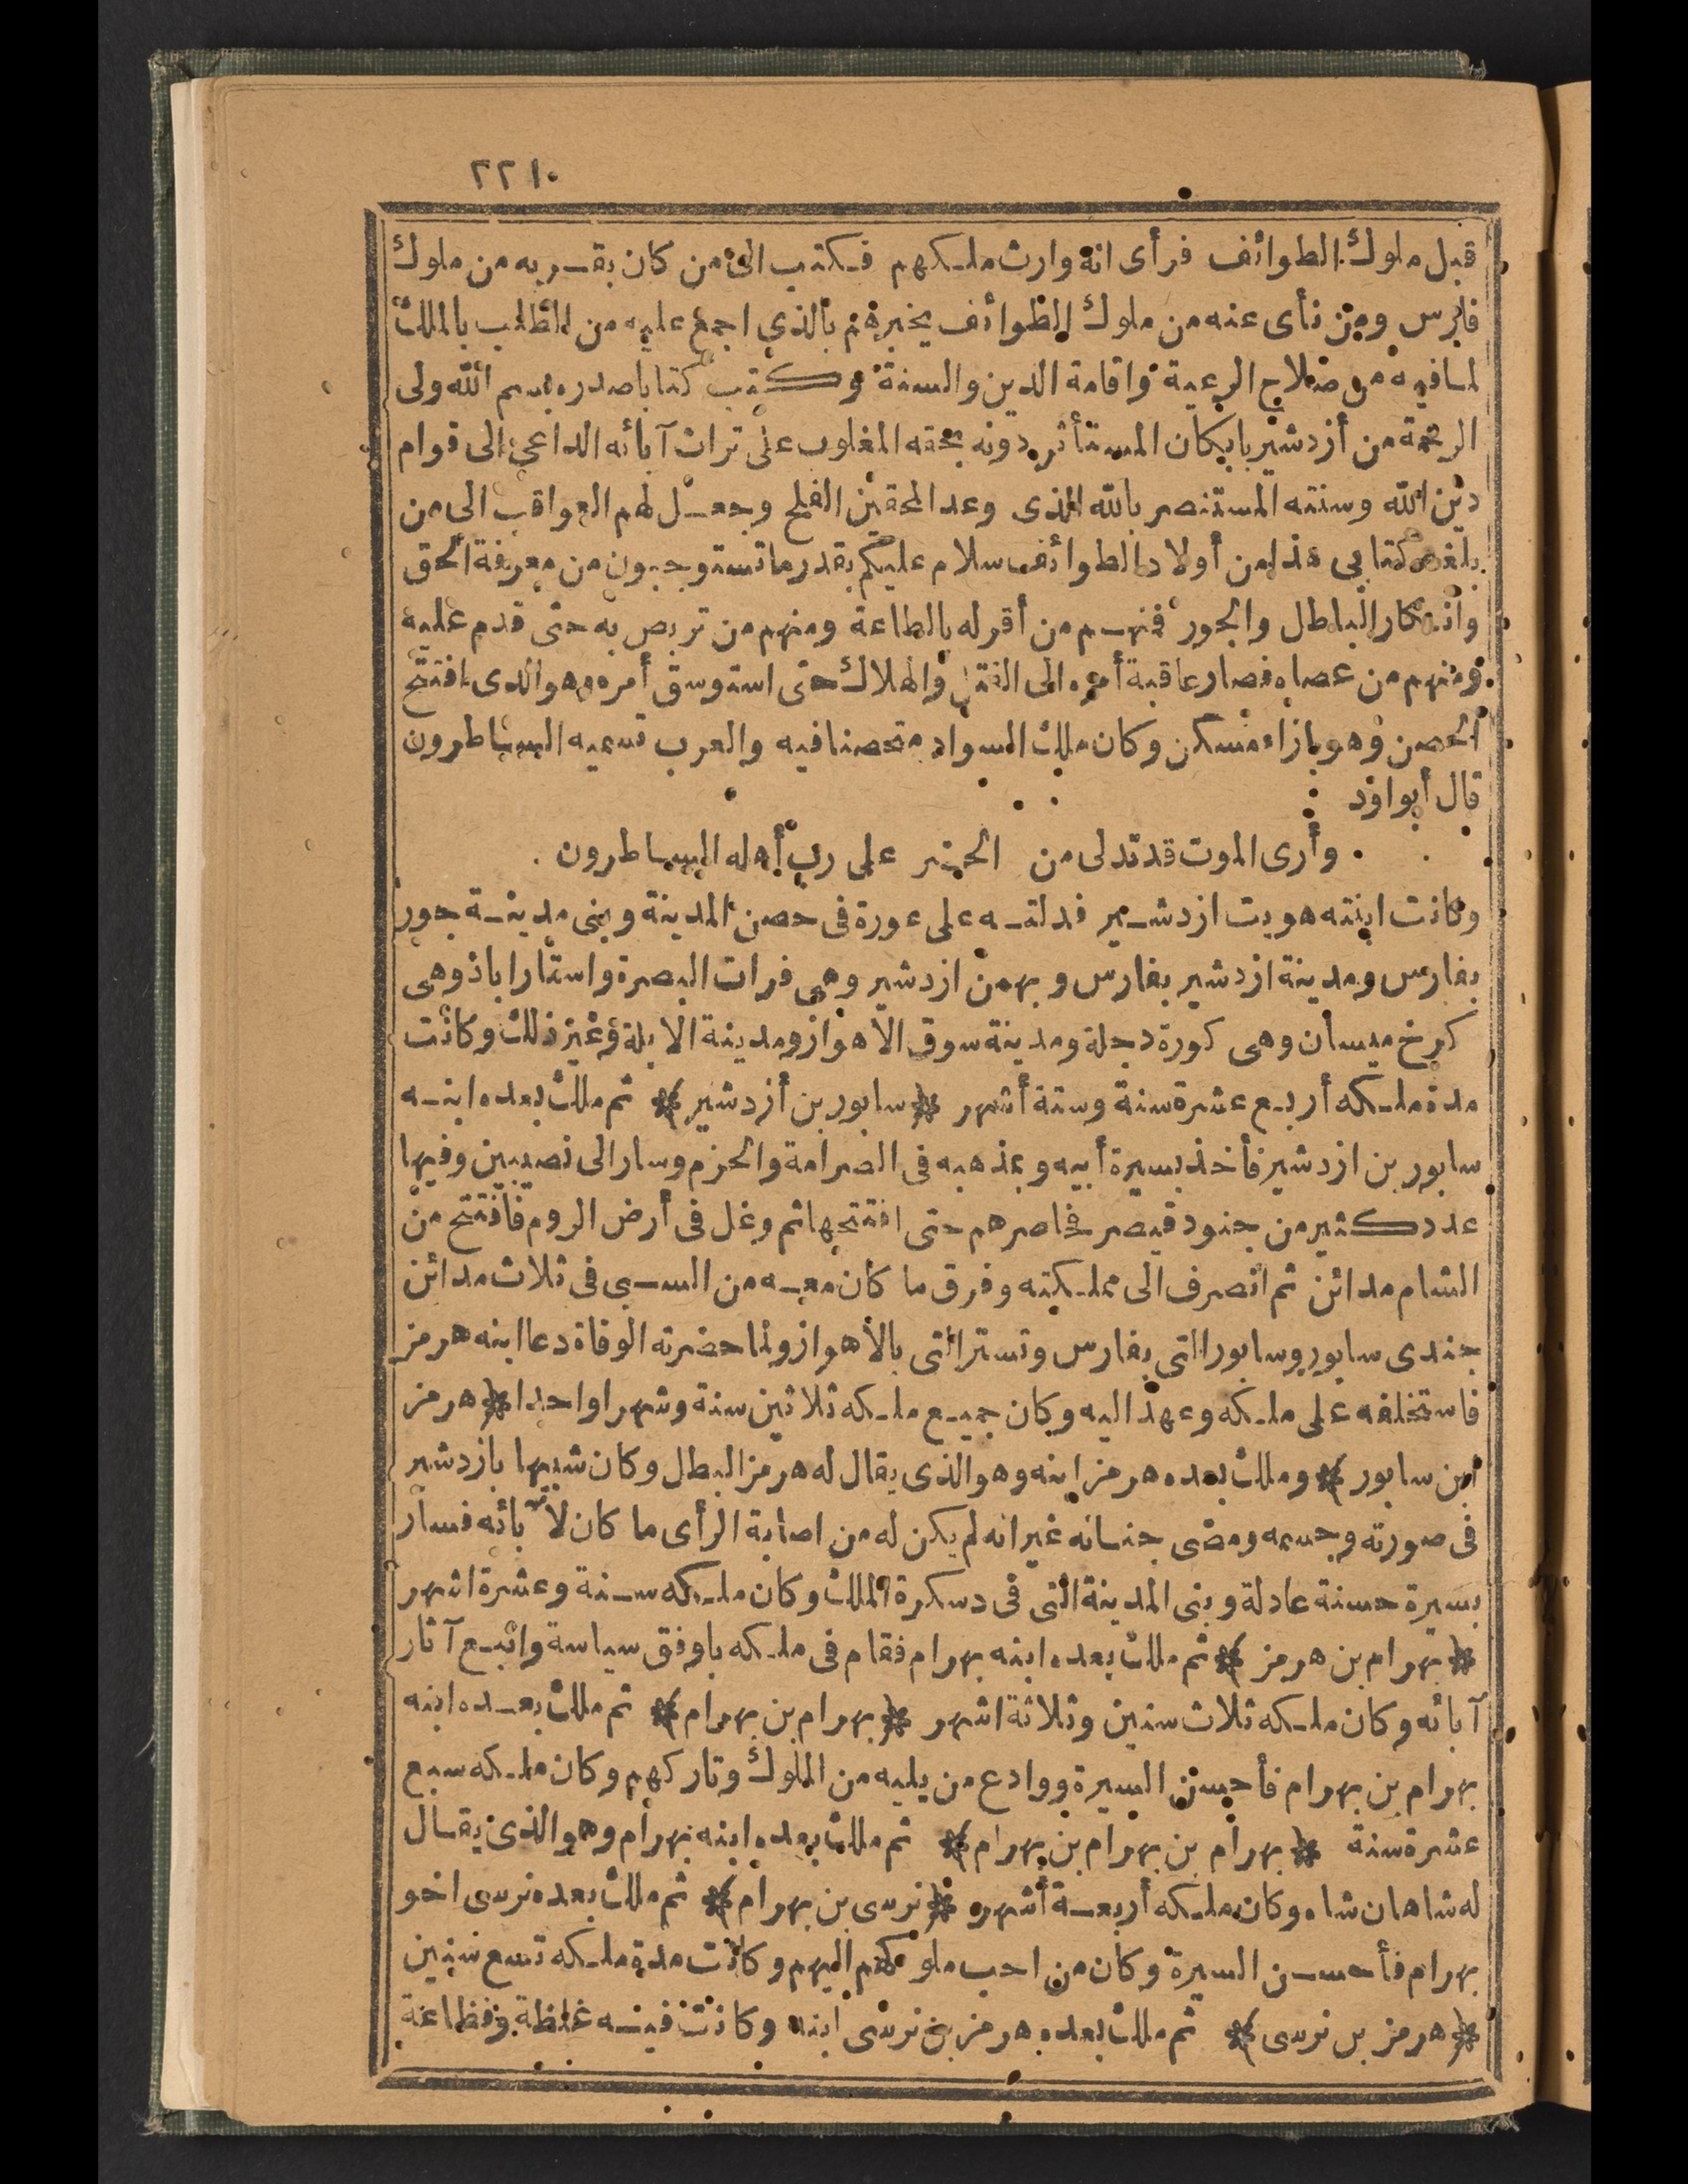 ٢٢١٠
قبل ملوك الطوائف فرأى انه وارث ملكهم فكتب الى من كان بقربه من ملوك
فارس ومن نأى عنه من ملوك الطوائف يخبرهم بالذي اجمع عليه من الطلب بالملك
لما فيه من صلاح الرعية واقامة الدين والسنة وكتب كتابا صدره بسم الله ولى
الرحمة من أزدشير بابكان المستأثر دونه بحقه المغلوب على تراث آبائه الداعي الى قوام
دين الله وسنته المستنصر بالله الذى وعد المحقين الفلح وجعل لهم العواقب الى من
بلغه كتابي هذا من أولاد الطوائف سلام عليكم بقدر ما تستوجبون من معرفة الحق
وانكار الباطل والجور فمنهم من أقر له بالطاعة ومنهم من تربص به حتى قدم عليه
ومنهم من عصاه فصار عاقبة أمره الى القتل والهلاك حتى استوسق أمره وهو الذى افتتح
الحصن وهو بازاء مسكن وكان ملك السواد متحصنا فيه والعرب تسميه الساطرون
قال أبو اود
وأرى الموت قد تدلى من الحضر على رب أهله الساطرون
وكانت ابنته هويت ازدشير فدلته على عورة فى حصن المدينة وبنى مدينة جور
بفارس ومدينة ازدشير بفارس وبهمن ازدشير وهى فرات البصرة واستاراباذ وهى
كرخ ميسان وهى كورة دجلة ومدينة سوق الاهواز ومدينة الابلة وغير ذلك وكانت
مدة ملكه أربع عشرة سنة وستة أشهر * سابور بن أزدشير * ثم ملك بعده ابنه
سابور بن ازدشير فأخذ بسيرة أبيه وبمذهبه فى الصرامة والحزم وسار الى نصيبين وفيها
عدد كثير من جنود قيصر فحاصرهم حتى افتتحها ثم وغل فى أرض الروم فافتتح من
الشام مدائن ثم انصرف الى مملكته وفرق ما كان معه من السبى فى ثلاث مدائن
جندى سابور وسابور التى بفارس وتستر التى بالأهواز ولما حضرته الوفاة دعا ابنه هرمز
فاستخلفه على ملكه وعهد اليه وكان جميع ملكه ثلاثين سنة وشهرا واحدا * هرمز
ابن سابور * وملك بعده هرمز ابنه وهو الذى يقال له هرمز البطل وكان شبيها بازدشير
فى صورته وجسمه ومضى جنانه غير انه لم يكن له من اصابة الرأى ما كان لآ بائه فسار
بسيرة حسنة عادلة وبنى المدينة التى فى دسكرة الملك وكان ملكه سنة وعشرة اشهر
* بهرام بن هرمز * ثم ملك بعده ابنه بهرام فقام فى ملكه باوفق سياسة واتبع آثار
آبائه وكان ملكه ثلاث سنين وثلاثة اشهر * بهرام بن بهرام * ثم ملك بعده ابنه
بهرام بن بهرام فأحسن السيرة ووادع من يليه من الملوك وتاركهم وكان ملكه سبع
عشرة سنة * بهرام بن بهرام بن بهرام * ثم ملك بعده ابنه بهرام وهو الذى يقال
له شاهان شاه وكان ملكه أربعة أشهر * نرسى بن بهرام * ثم ملك بعده نرسى اخو
بهرام فأحسن السيرة وكان من احب ملوكهم اليهم وكانت مدة ملكه تسع سنين
* هرمز بن نرسى * ثم ملك بعده هرمز بن نرسى ابنه وكانت فيه غلظة وفظاعة